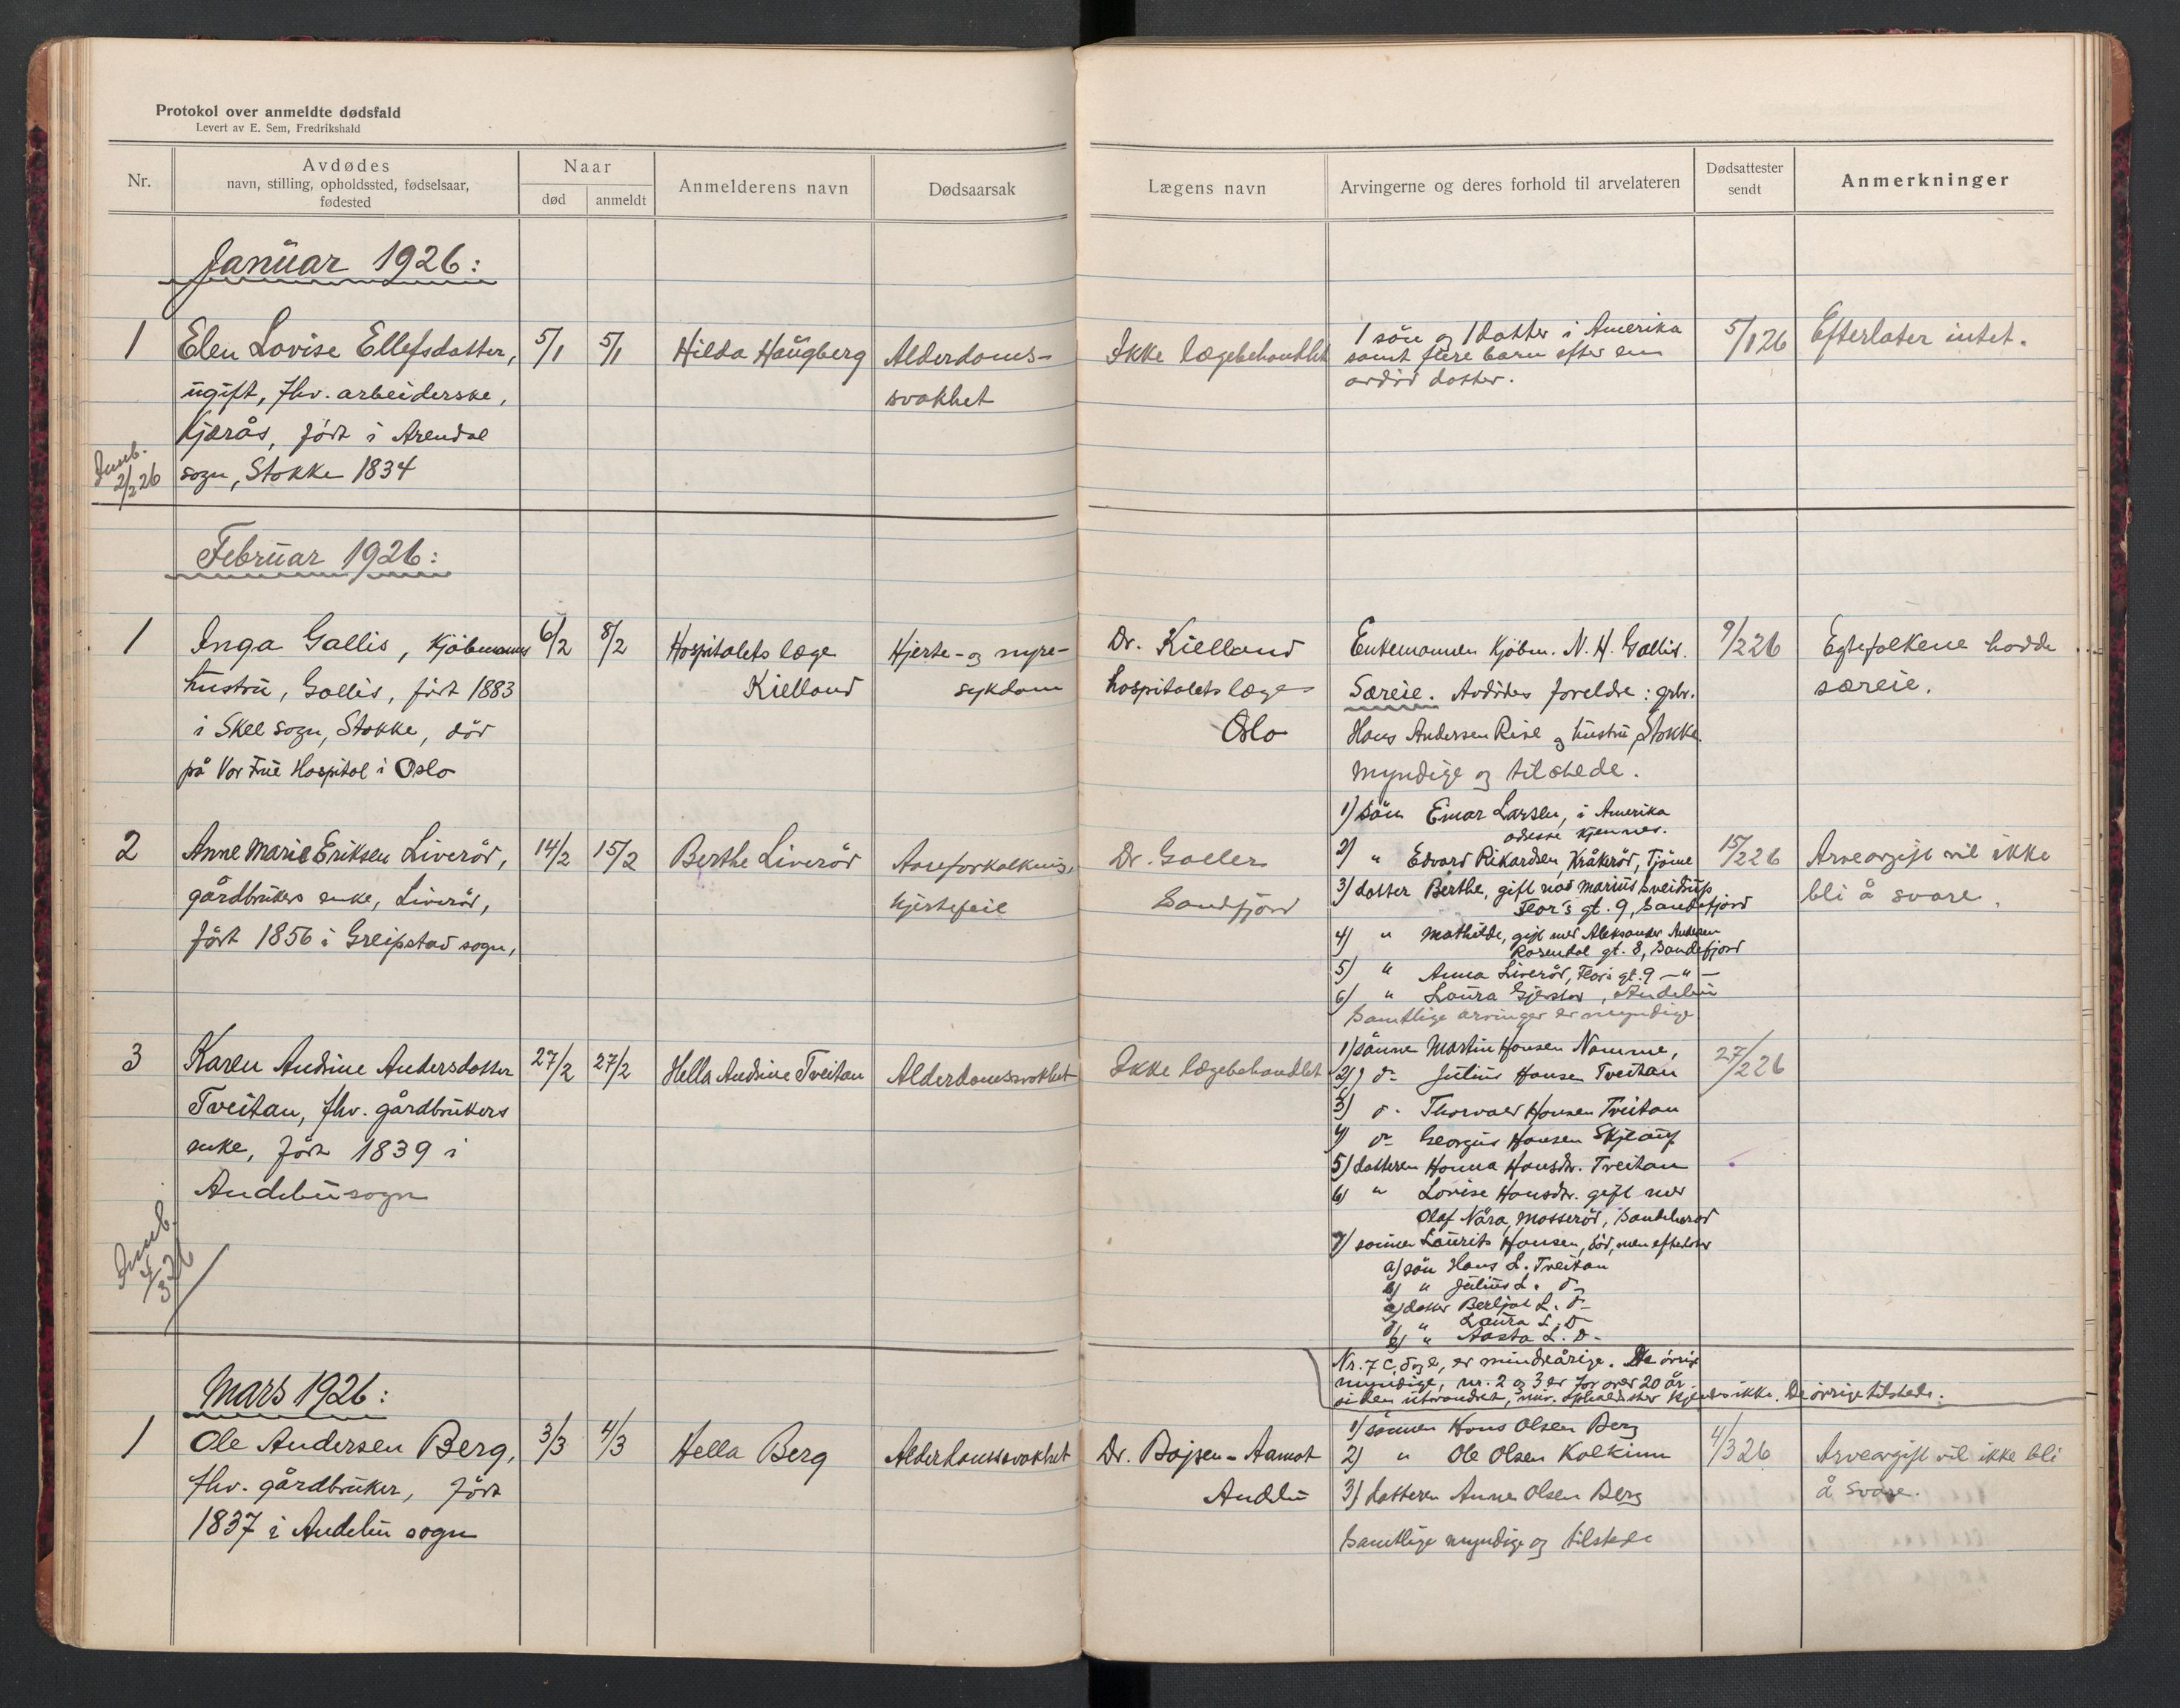 Protokol over anmeldte dødsfald
Levert av E. Sem, Fredrikshald
Nr.
Avdødes
navn, stilling, opholdssted, fødselsaar,
fødested
Naar
død
anmeldt
Anmelderens navn
Dødsaarsak
Lægens navn
Arvingerne og deres forhold til arvelateren
Dødsattester
sendt
Anmerkninger
Januar 1926:
1
Elen Lovise Ellefsdatter,
ugift, fhv. arbeiderske,
Kjærås, født i Arendal
sogn, Stokke 1834
5/1
5/1
Hilda Haugberg
Alderdoms-
svakhet
Ikke lægebehandlet
1 sön og 1 datter i Amerika
samt flere barn efter en
avdöd datter.
5/1 26
Efterlater intet.
Innb.
2/2 26
Februar 1926:
1
Inga Gallis, Kjöbmanns
hustru, Gallis, född 1883
i Skee sogn, Stokke, död
på Vor Frue Hospital i Oslo
6/2
8/2
Hospitalets læge
Kielland
Hjerte- og nyre-
sykdom
Dr. Kielland
hospitalets læge
Oslo
Enkemannen Kjöbm. N. H. Gallis.
Særeie. Avdödes foreldre: grbr.
Hans Andersen Rise og hustru, Stokke.
Myndige og tilstede.
9/2 26
Egtefolkene hadde
særeie.
2
Anne Marie Eriksen Liveröd,
gårdbrukers enke, Liveröd,
födt 1856 i Greipstad sogn,
14/2
15/2
Berthe Liveröd
Aareforkalkning,
hjertefeil
Dr. Galler
Sandefjord
1) sön Einar Larsen, i Amerika
adresse kjennes.
2) " Edvard Rikardsen, Kråkeröd, Tjöme
3) datter Berthe, gift med Marius Sveidrup
Flor's gt. 9, Sandefjord
4) " Mathilde, gift med Aleksander Andersen
Rosendal gt. 8, Sandefjord
5) " Anna Liveröd, Flors gt. 9 — " —
6) " Laura Gjerstad, Andebu
Samtlige arvinger er myndige
15/2 26
Arveavgift vil ikke
bli å svare.
3
Karen Andrine Andersdatter
Tveitan, fhv. gårdbrukers
enke, född 1839 i
Andebu sogn
27/2
27/2
Hella Andrine Tveitan
Alderdomssvakhet
Ikke lægebehandlet
1) sönnen Martin Hansen Namme,
2) do Julius Hansen Tveitan
3) do Thorvald Hansen Tveitan
4) do Georgius Hansen Skjelaug
5) datteren Hanna Hansdtr. Tveitan
6) " Lovise Hansdtr. gift med
Olaf Nära, Mosseröd, Sandeherad
7) sönnen Laurits Hansen, död, men efterlater
a) sön Hans L. Tveitan
b) " Julius L. do
c) datter Berljot L. do
d) " Laura L. do
e) " Aasta L. do
Nr. 7 c, d og e, er mindreårige. De övrige
myndige, nr. 2 og 3 er for over 20 år
siden utvandret, nuv. opholdssted kjendes ikke. De övrige tilstede.
27/2 26
Innb.
4/3 26
Mars 1926:
1
Ole Andersen Berg,
fhv. gårdbruker, född
1837 i Andebu sogn
3/3
4/3
Hella Berg
Alderdomssvakhet
Dr. Bojsen-Aamot
Andebu
1) sönnen Hans Olsen Berg
2) " Ole Olsen Kolkinn
3) datteren Anne Olsen Berg
Samtlige myndige og tilstede
4/3 26
Arveavgift vil ikke bli
å svare.